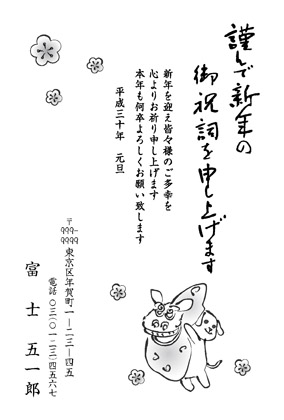 謹んで新年の
御祝詞を申し上げます
新年を迎え皆々様のご多幸を
心よりお祈り申し上げます
本年も何卒よろしくお願い致します
平成三十年 元旦
〒
999-
9999
東京区年賀町一-二三-四五
電話 〇三(〇一二三)四五六七
富士 五一郎